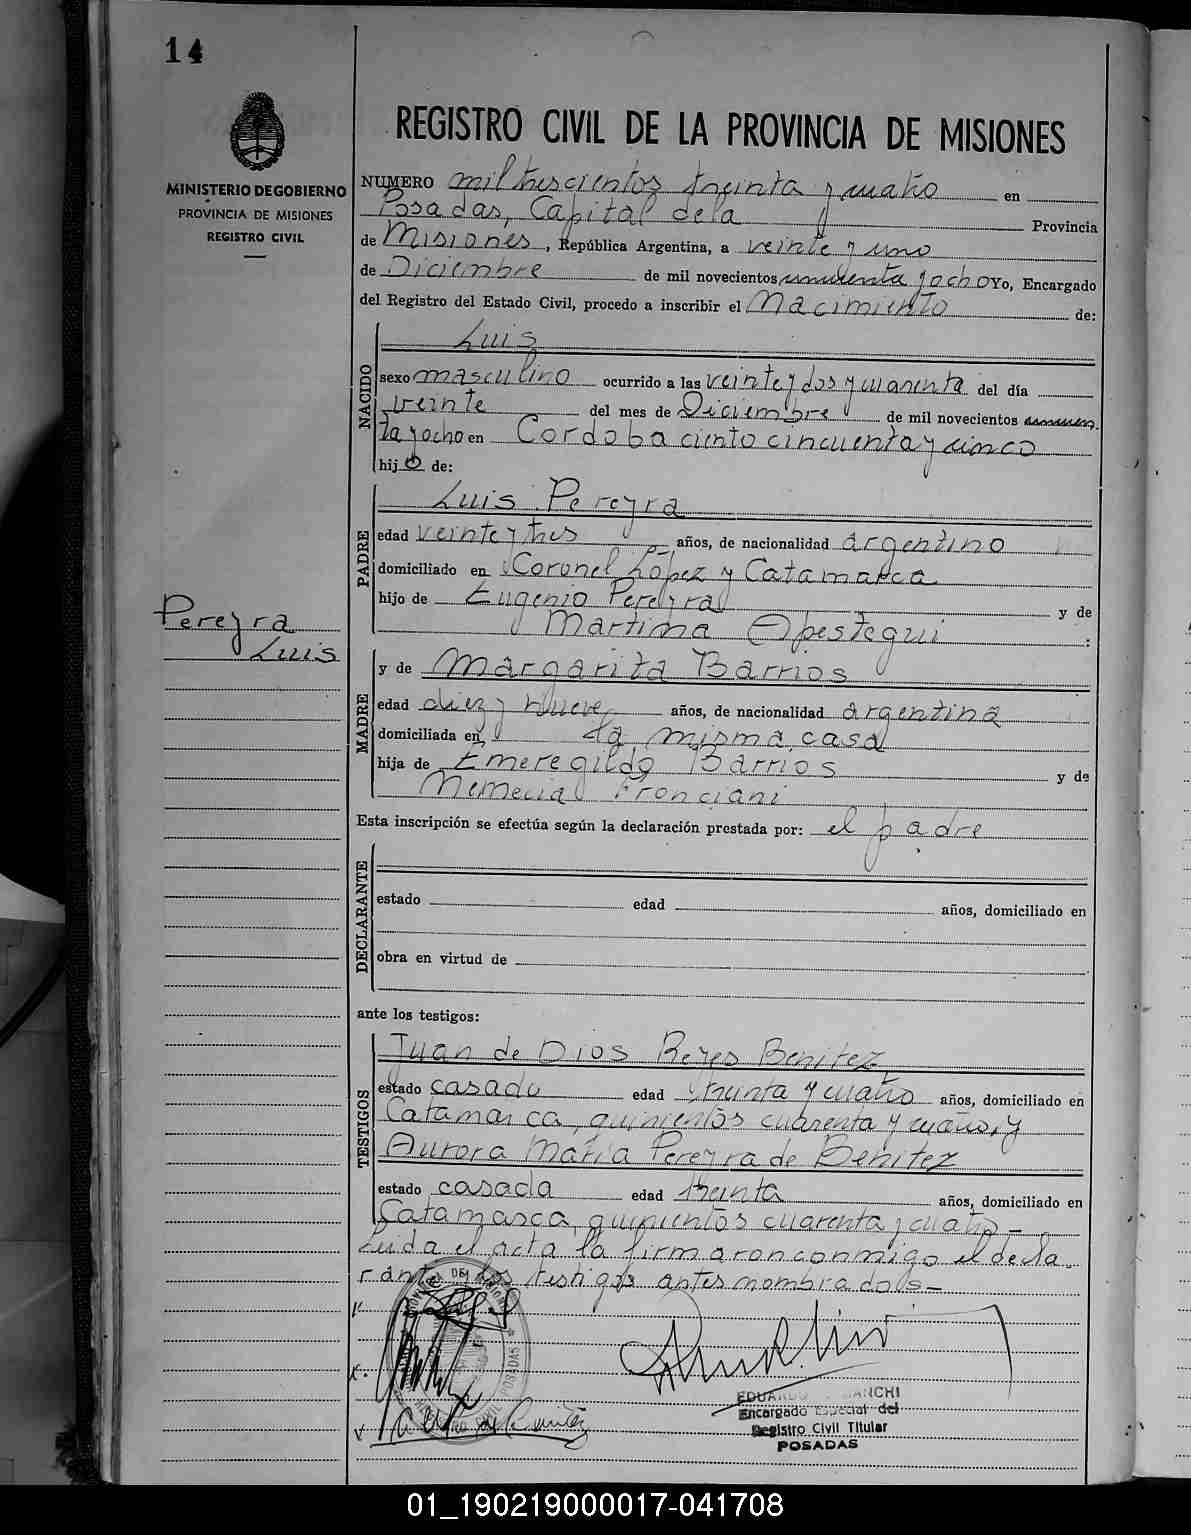 14
MINISTERIO DE GOBIERNO
PROVINCIA DE MISIONES
REGISTRO CIVIL
REGISTRO CIVIL DE LA PROVINCIA DE MISIONES
NUMERO mil trescientos treinta y cuatro en
Posadas, Capital de la Provincia
de Misiones, República Argentina, a veinte y uno
de Diciembre de mil novecientos cincuenta y ocho Yo, Encargado
del Registro del Estado Civil, procedo a inscribir el Nacimiento de:
NACIDO
Luis
sexo masculino ocurrido a las veinte y dos y cuarenta del día
veinte del mes de Diciembre de mil novecientos cincuen
ta y ocho en Cordoba ciento cincuenta y cinco
hijo de:
PADRE
Luis Pereyra
edad veinte y tres años, de nacionalidad argentino
domiciliado en Coronel López y Catamarca
hijo de Eugenio Pereyra y de
Martina Apestegui :
Pereyra
Luis
MADRE
y de Margarita Barrios
edad diez y nueve años, de nacionalidad argentina
domiciliada en la misma casa
hija de Emeregildo Barrios y de
Nemecia Fronciani
Esta inscripción se efectúa según la declaración prestada por: el padre
DECLARANTE
estado edad años, domiciliado en
obra en virtud de
ante los testigos:
TESTIGOS
Juan de Dios Reyes Benitez
estado casado edad treinta y cuatro años, domiciliado en
Catamarca, quinientos cuarenta y cuatro, y
Aurora María Pereyra de Benitez
estado casada edad treinta años, domiciliado en
Catamarca, quinientos cuarenta y cuatro.-
Leida el acta la firmaron conmigo el decla
rante testigos antes nombrados.-
EDUARDO BIANCHI
Encargado Especial del
Registro Civil Titular
POSADAS
01_190219000017-041708